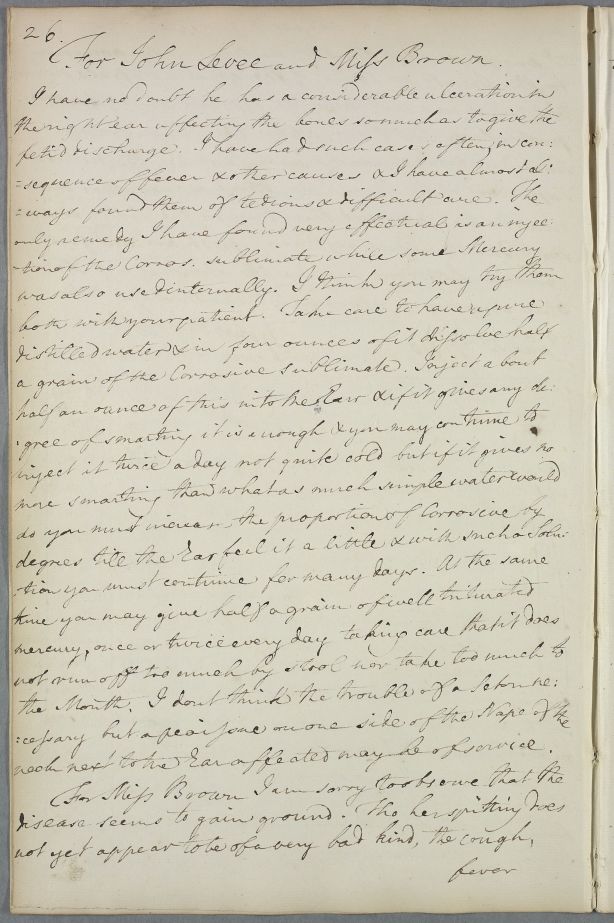 26.
For John Levee and Miss Brown.
I have no doubt he has a considerable ulceration in
the right ear affecting the bones so much as to give the
fetid discharge. I have had such cases often, in con:
=sequence of fever & other causes & I have almost al:
=ways found them of tedious & difficult cure. The
only remedy I have found very effectual is an injec:
=tion of the Corros. sublimate while some Mercury
was also used internally. I think you may try them
both with your patient. Take care to have a pure
distilled water & in four ounces of it dissolve half
a grain of the Corrosive sublimate. Inject about
half an ounce of this into the Ear & if it gives any de:
=gree of smarting it is enough & you may continue to
inject it twice a day not quite cold but if it gives no
more smarting than what as much simple water would
do you must increase the proportion of Corrosive by
degrees till the Ear feel it a little & with such a Solu:
=tion you must continue for many days. At the same
time you may give half a grain of well triturated
mercury, once or twice every day taking care that it does
not run off too much by stool nor take too much to
the Mouth. I dont think the trouble of a Seton ne:
=cessary but a pea issue on one side of the Nape of the
neck next to the Ear affected may be of service.
For Miss Brown I am sorry to observe that the
disease seems to gain ground. Tho her spitting does
not yet appear to be of a very bad kind, the cough,
fever